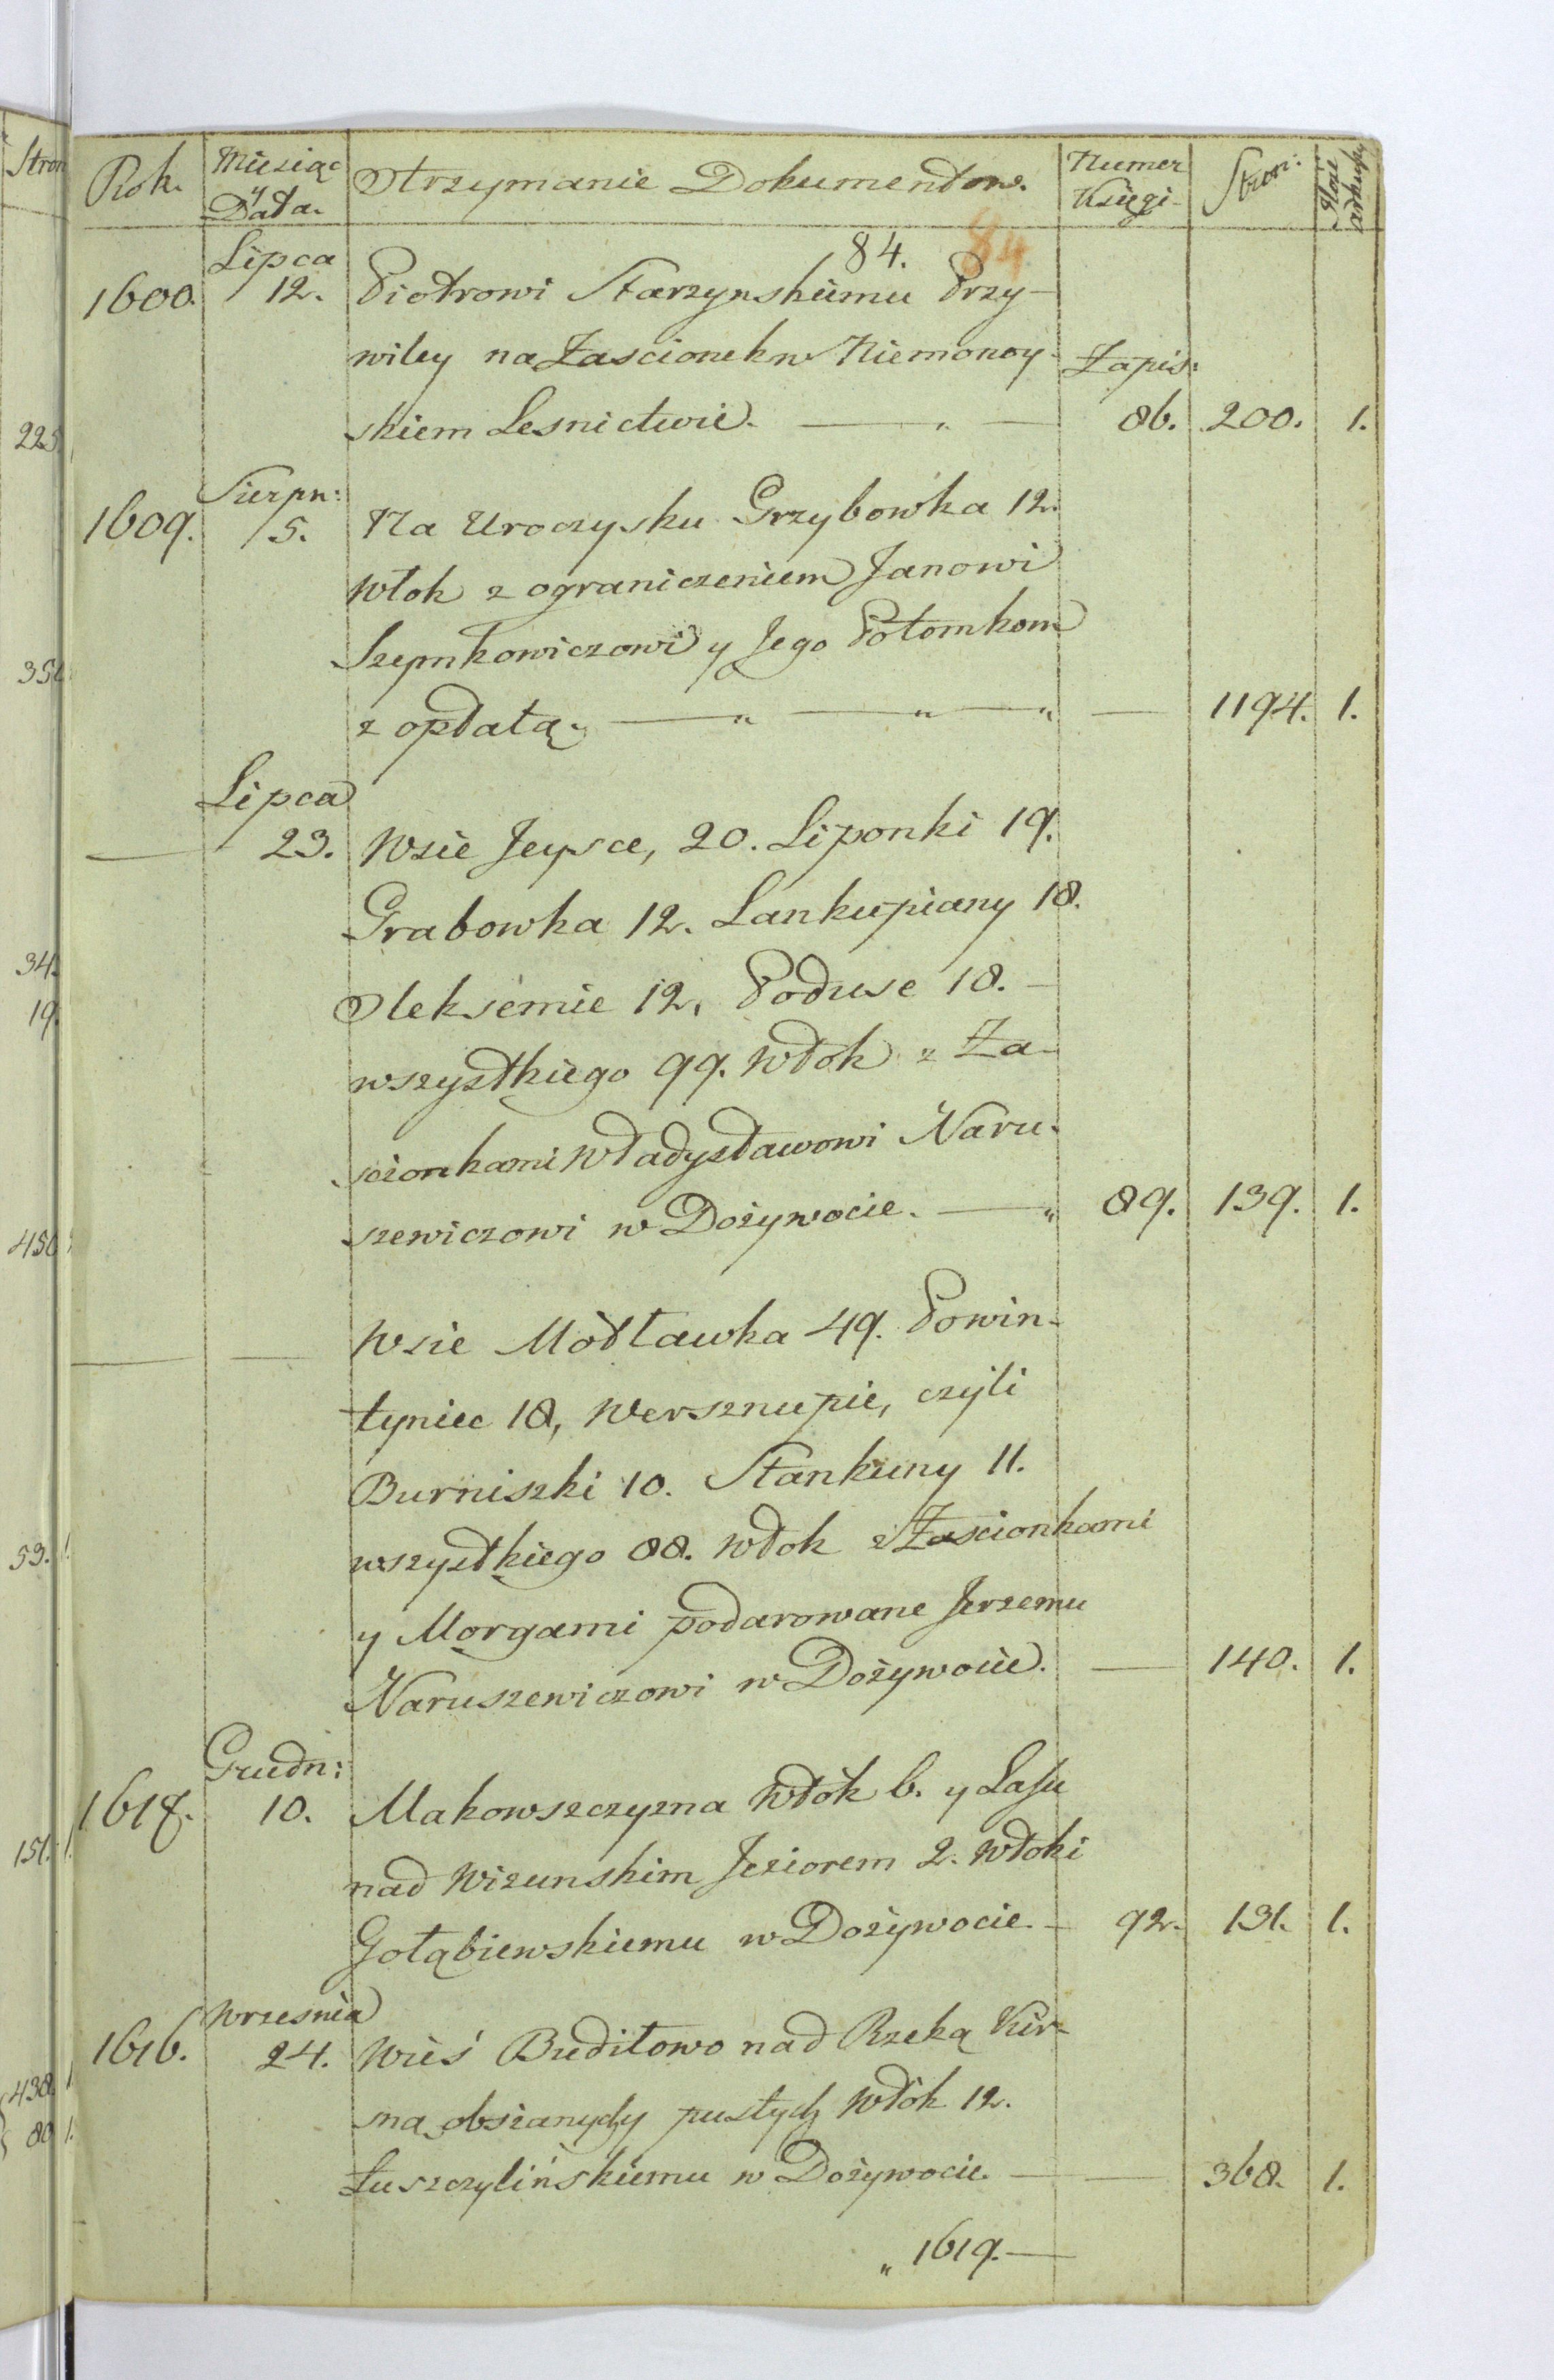 Rok. Miesiąc y Data. Otrzymanie Dokumentow. Numer Księgi Stron: Ilość arkuszy
84. 84
Lipca
1600. 12. Piotrowi Starzynskiemu Przy-
wiley na Zascionek w Niemonoy- Zapis:
skiem Lesnictwie. — „ — 86. 200. 1.
Sierpn:
1609. 5. Na Uroczysku Grzybowka 12.
Włok z ograniczeniem Janowi
Szymkowiczowi y Jego Potomkom
z opłatą. — „ — „ — „ — 1194. 1.
Lipca
— 23. Wsie Jeysce, 20. Liponki 19.
Grabowka 12. Lankupiany 18.
Oleksemie 12, Poduse 18. —
wszystkiego 99. Włok z Za-
scionkami Władysławowi Naru-
szewiczowi w Dożywocie. — „ 89. 139. 1.
— — Wsie Modławka 49. Powin-
tyniec 18, Wersznupie, czyli
Burniszki 10. Stankuny 11.
wszystkiego 88. Włok z Zascionkami
y Morgami podarowane Jerzemu
Naruszewiczowi w Dożywocie. — 140. 1.
Grudn:
1618. 10. Makowszczyzna Włók 6. y Lasu
nad Wizunskim Jeziorem 2. Włoki
Gołąbiewskiemu w Dożywocie. — 92. 131. 1.
Wrzesnia
1616. 24. Wieś Budiłowo nad Rzeką Kir-
sną obsianych y pustych Włók 12.
Łuszczylińskiemu w Dożywocie. — — 368. 1.
„ 1619. —
Stron
225
34.
19.
450
53.
151.
438. 1
80 1.